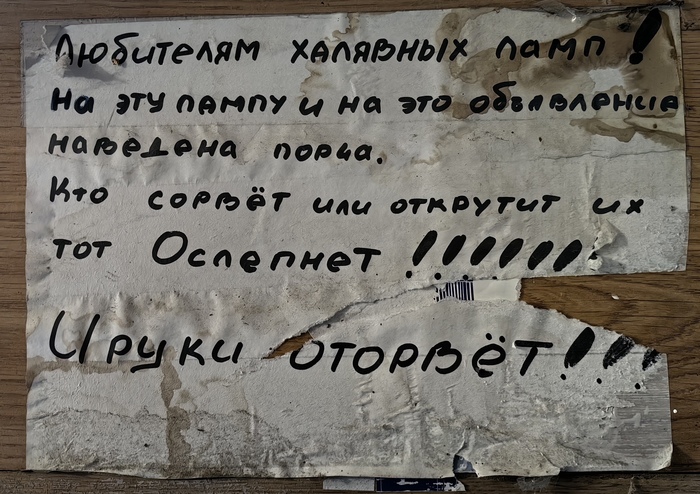 Любителям халявных ламп!
На эту лампу и на это объявление
наведена порча.
Кто сорвёт или открутит их
тот Ослепнет !!!!!!!
И руки оторвёт!!!